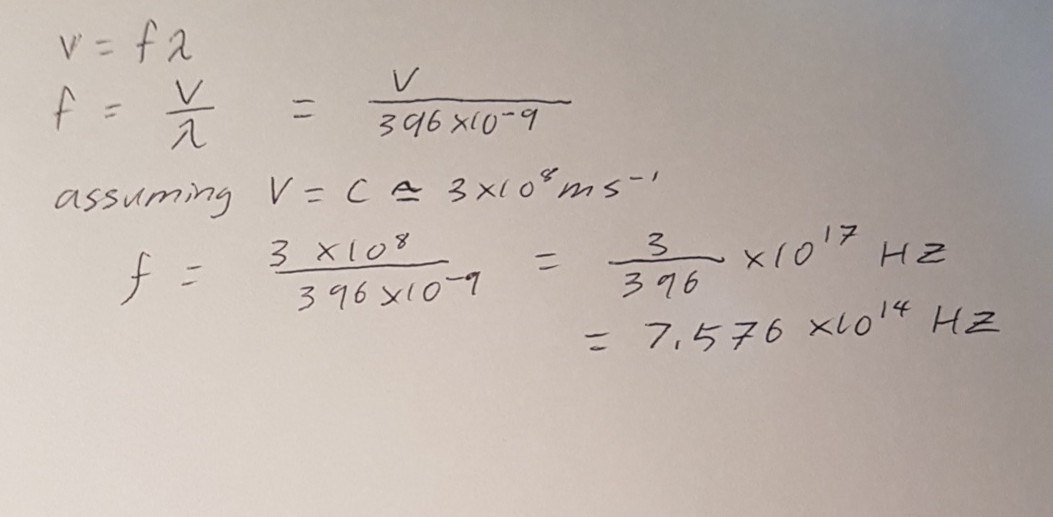 v = fλ
f = v/λ = v/396×10⁻⁹
assuming v = c ≃ 3×10⁸ms⁻¹
f = 3×10⁸/396×10⁻⁹ = 3/396 ×10¹⁷ HZ
= 7.576 ×10¹⁴ HZ